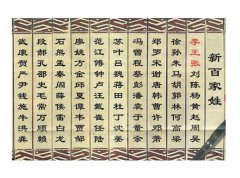 新百家姓
李王张刘陈杨黄赵周吴
徐孙朱马胡郭林何高梁
郑罗宋谢唐韩曹许邓萧
冯曾程蔡彭潘袁于董余
苏叶吕魏蒋田杜丁沈姜
范江傅钟卢汪戴崔任陆
石熊孟秦阎薛侯雷白龙
段郝孔邵史毛常万顾赖
武康贺严尹钱施牛洪龚